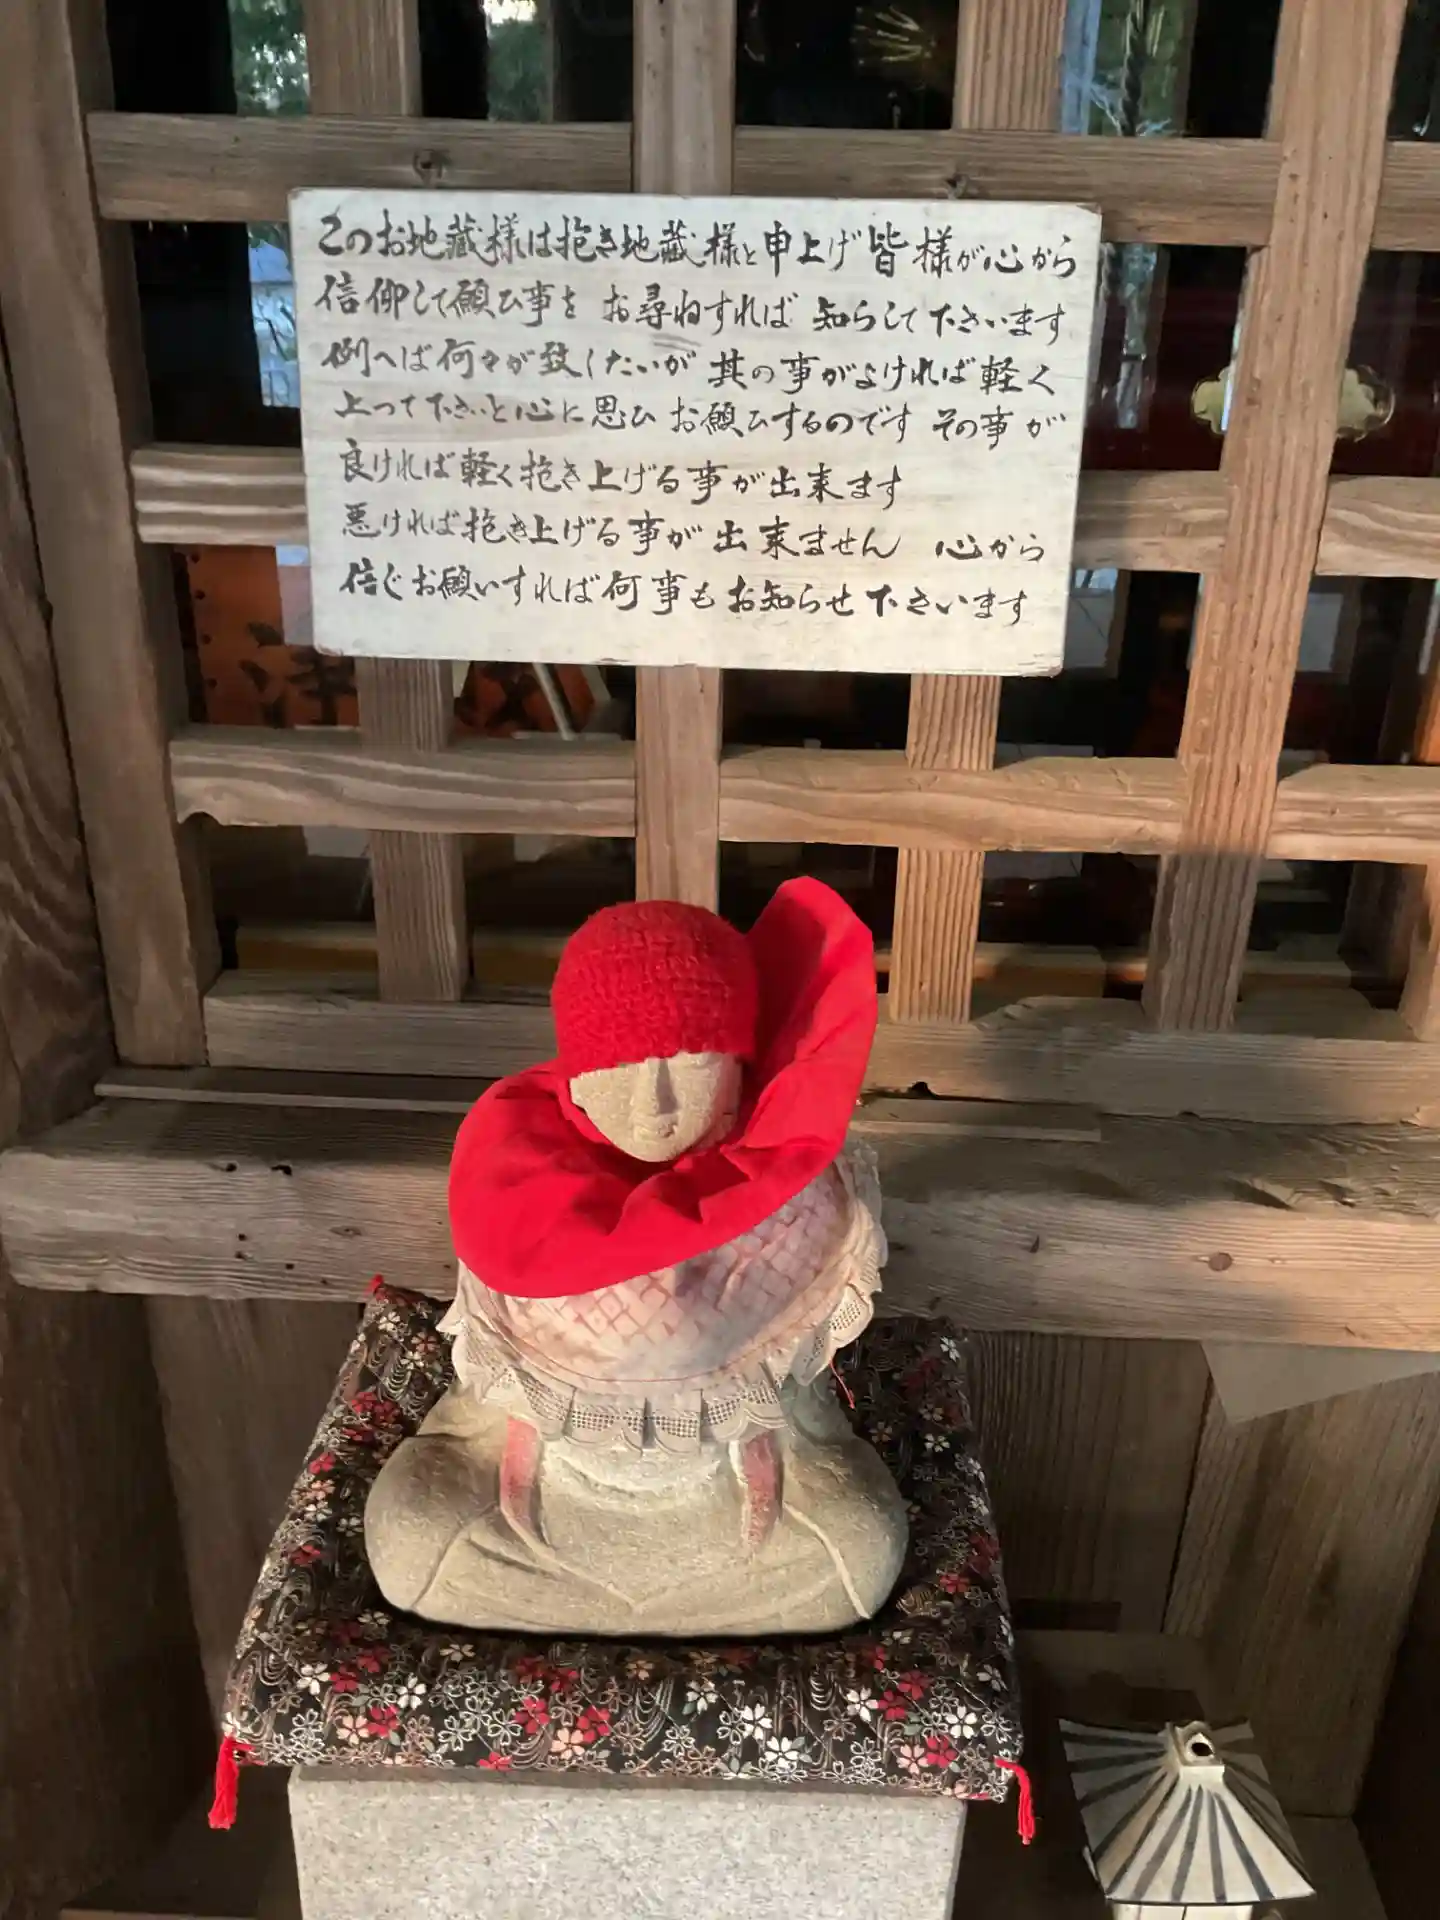 このお地蔵様は抱き地蔵様と申上げ皆様が心から
信仰して願ひ事を お尋ねすれば 知らして下さいます
例へば何々が致したいが 其の事がよければ軽く
上って下さいと心に思ひ お願ひするのです その事が
良ければ軽く抱き上げる事が出来ます
悪ければ抱き上げる事が 出来ません 心から
信じお願いすれば何事もお知らせ下さいます